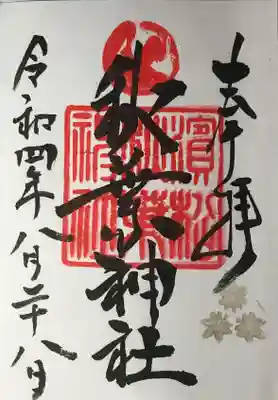 奉拝
秋葉神社
令和四年八月二十八日
濱松